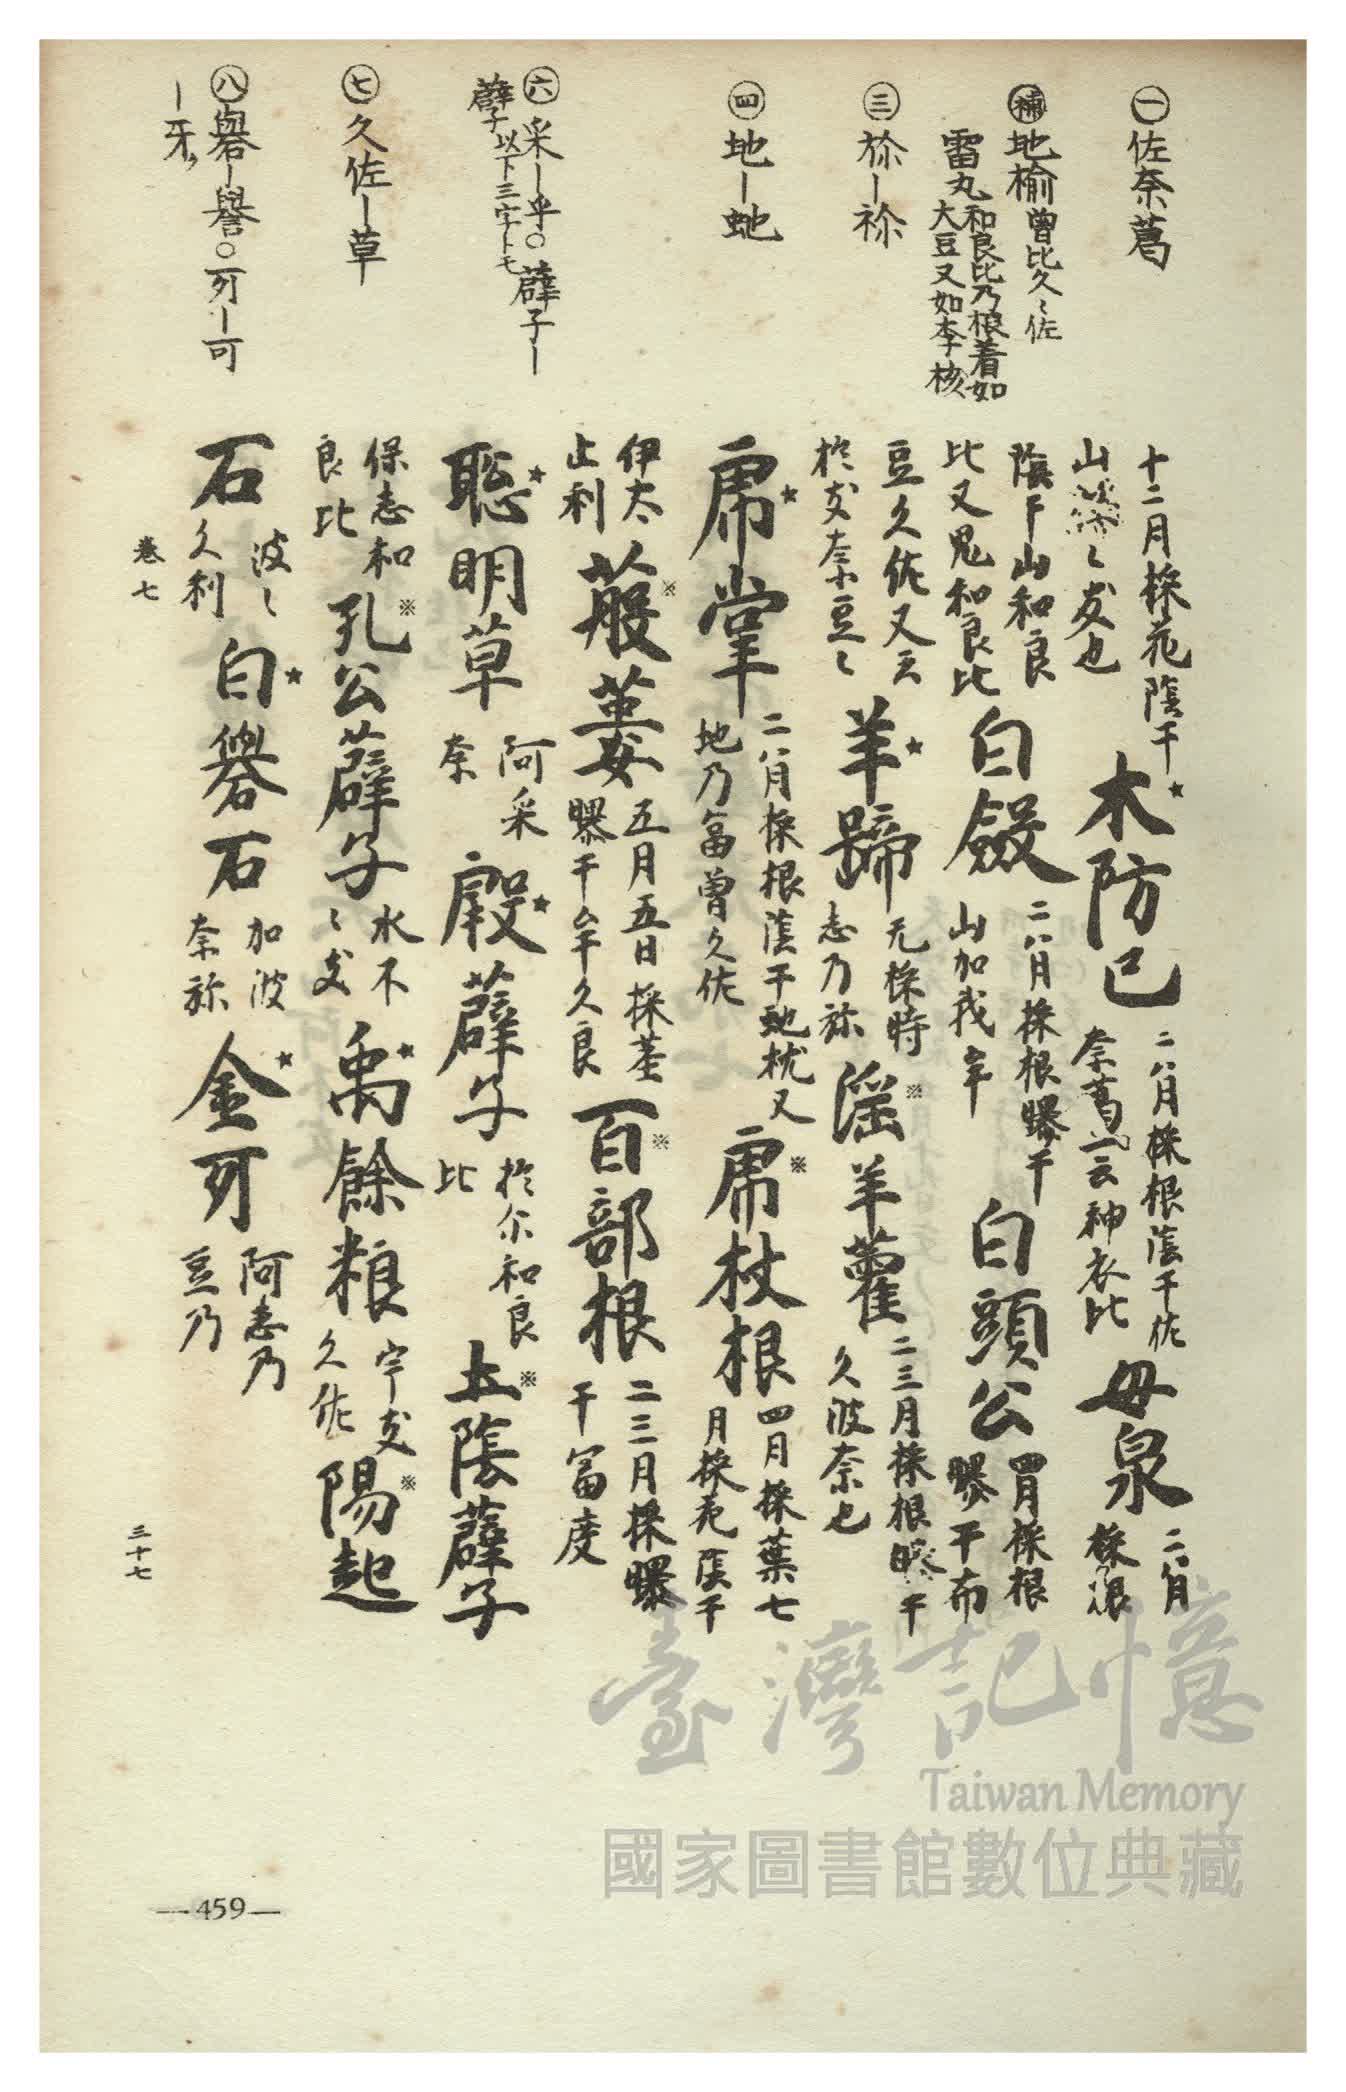 ㊀佐奈葛
㊙補 地榆曾比久〻佐
雷丸和良比乃根着如
大豆又如李核
㊂祢ー祢
㊃地ー虵
㊅采ー乎○薜子ー
薜子以下三字ーモ
㊆久佐ー草
㊇礜ー譽○可ー可
ー牙
十二月採花蔭干
山〻支也
木防已
二八月採根蔭干佐
奈葛一云神衣比
母泉
二八月
採根
陰干山和良
比又鬼和良比
白斂
二八月採根曝干
山加我牟
白頭公
四月採根
曝干布
豆久佐又云
於支奈豆〻
羊蹄
无採時
志乃祢
淫羊藿
二三月採根曝干
久波奈也
虎掌
二八月採根蔭干虵枕又
地乃富曾久佐
虎杖根
四月採葉七
月採花蔭干
伊太
止利
菝葜
五月五日採莖
曝干牟久良
百部根
二三月採曝
干富度
聡明草
阿采
奈
殿薜子
於尓和良
比
土蔭薜子
保志和
良比
孔公薜子
水不
〻支
禹餘粮
宇支
久佐
陽起
石
波〻
久利
白礜石
加波
奈祢
金可
阿志乃
豆乃
卷七
三十七
—459—
臺灣記憶
Taiwan Memory
國家圖書館數位典藏